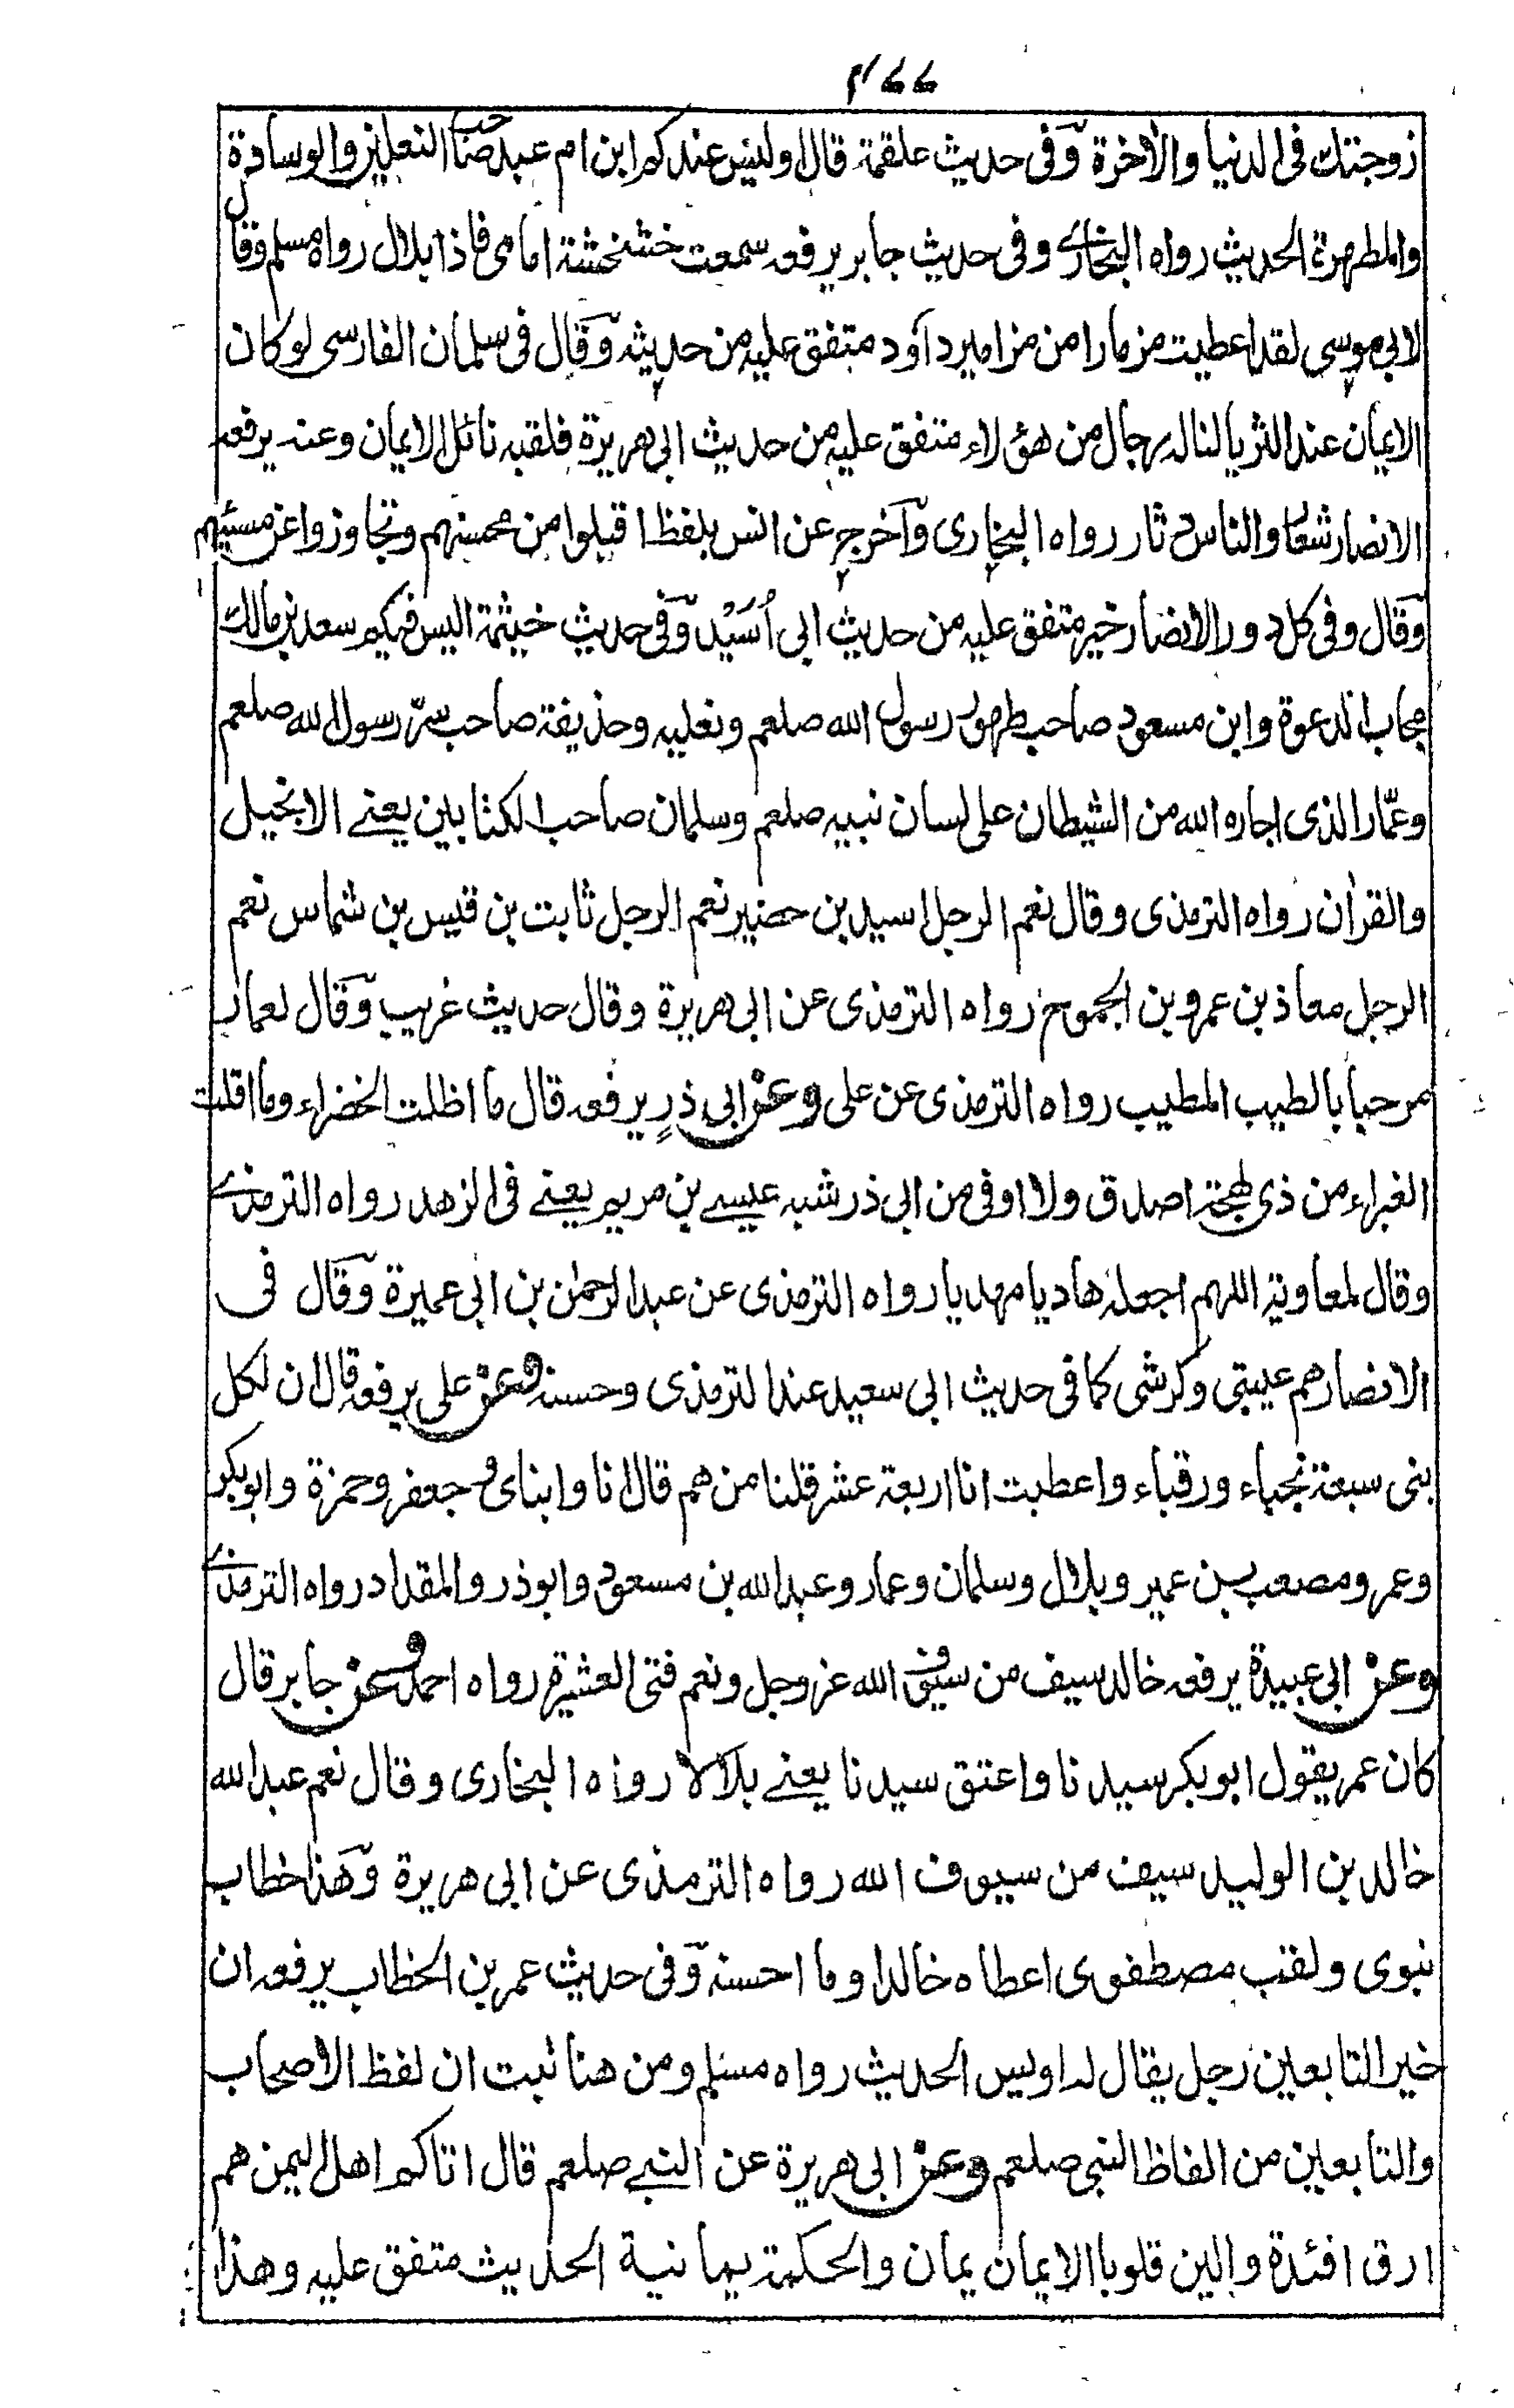 م٤٤
زوجتك فى الدنيا والاٰخرة وفى حديث علقمة قال اوليس عندكم ابن ام عبد صاحب النعلين والوسادة
والمطهرة الحديث رواه البخارى وفى حديث جابر يرفعه سمعت خشخشة امامى فاذا بلال رواه مسلم وقال
لابى موسى لقد اعطيت مزمارا من مزامير داؤد متفق عليه من حديثه وقال فى سلمان الفارسى لو كان
الايمان عند الثريا لناله رجال من هؤلاء متفق عليه من حديث ابى هريرة فلقبه نائل الايمان وعنه يرفعه
الانصار شعار والناس دثار رواه البخارى وآخرجه عن انس بلفظ اقبلوا من محسنهم وتجاوزوا عن مسيئهم
وقال وفى كل دور الانصار خير متفق عليه من حديث ابى اُسَيْد وفى حديث خيثمة اليس فيكم سعد بن مالك
مجاب الدعوة وابن مسعود صاحب طهور رسول الله صلعم ونعليه وحذيفة صاحب سرّ رسول الله صلعم
وعمّار الذى اجاره الله من الشيطان على لسان نبيه صلعم وسلمان صاحب الكتابين يعنے الانجيل
والقراٰن رواه الترمذى وقال نعم الرجل اسيد بن حضير نعم الرجل ثابت بن قيس بن شماس نعم
الرجل معاذ بن عمرو بن الجموح رواه الترمذى عن ابى هريرة وقال حديث غريب وقال لعمار
مرحبا بالطيب المطيب رواه الترمذى عن على وعن ابى ذرٍ يرفعه قال ما اظلت الخضراء وما اقلت
الغبراء من ذى لهجة اصدق ولا اوفى من ابى ذر شبه عيسے بن مريم يعنے فى الزهد رواه الترمذے
وقال لمعاوية اللهم اجعله هاديا مهديا رواه الترمذى عن عبد الرحمٰن بن ابى عميرة وقال فى
الانصار هم عيبتى وكرشى كما فى حديث ابى سعيد عند الترمذى وحسنه وعن على يرفعه قال ان لكل
بنى سبعة نجباء ورقباء واعطيت انا اربعة عشر قلنا من هم قال انا وابناى و جعفر وحمزة وابوبكر
وعمر ومصعب بن عمير وبلال وسلمان وعمار وعبد الله بن مسعود وابوذر والمقداد رواه الترمذے
وعن ابى عبيدة يرفعه خالد سيف من سيوف الله عز وجل ونعم فتى العشيرة رواه احمد وعن جابر قال
كان عمر يقول ابوبكر سيدنا واعتق سيدنا يعنے بلالا رواه البخارى وقال نعم عبد الله
خالد بن الوليد سيف من سيوف الله رواه الترمذى عن ابى هريرة وهذا خطاب
نبوى ولقب مصطفوى اعطاه خالدا وما احسنه وفى حديث عمر بن الخطاب يرفعه ان
خير التابعين رجل يقال له اويس الحديث رواه مسلم ومن هنا ثبت ان لفظ الاصحاب
والتابعين من الفاظ النبى صلعم وعن ابى هريرة عن النبے صلعم قال اتاكم اهل اليمن هم
ارق افئدة والين قلوبا الايمان يمان والحكمة يمانية الحديث متفق عليه وهذا